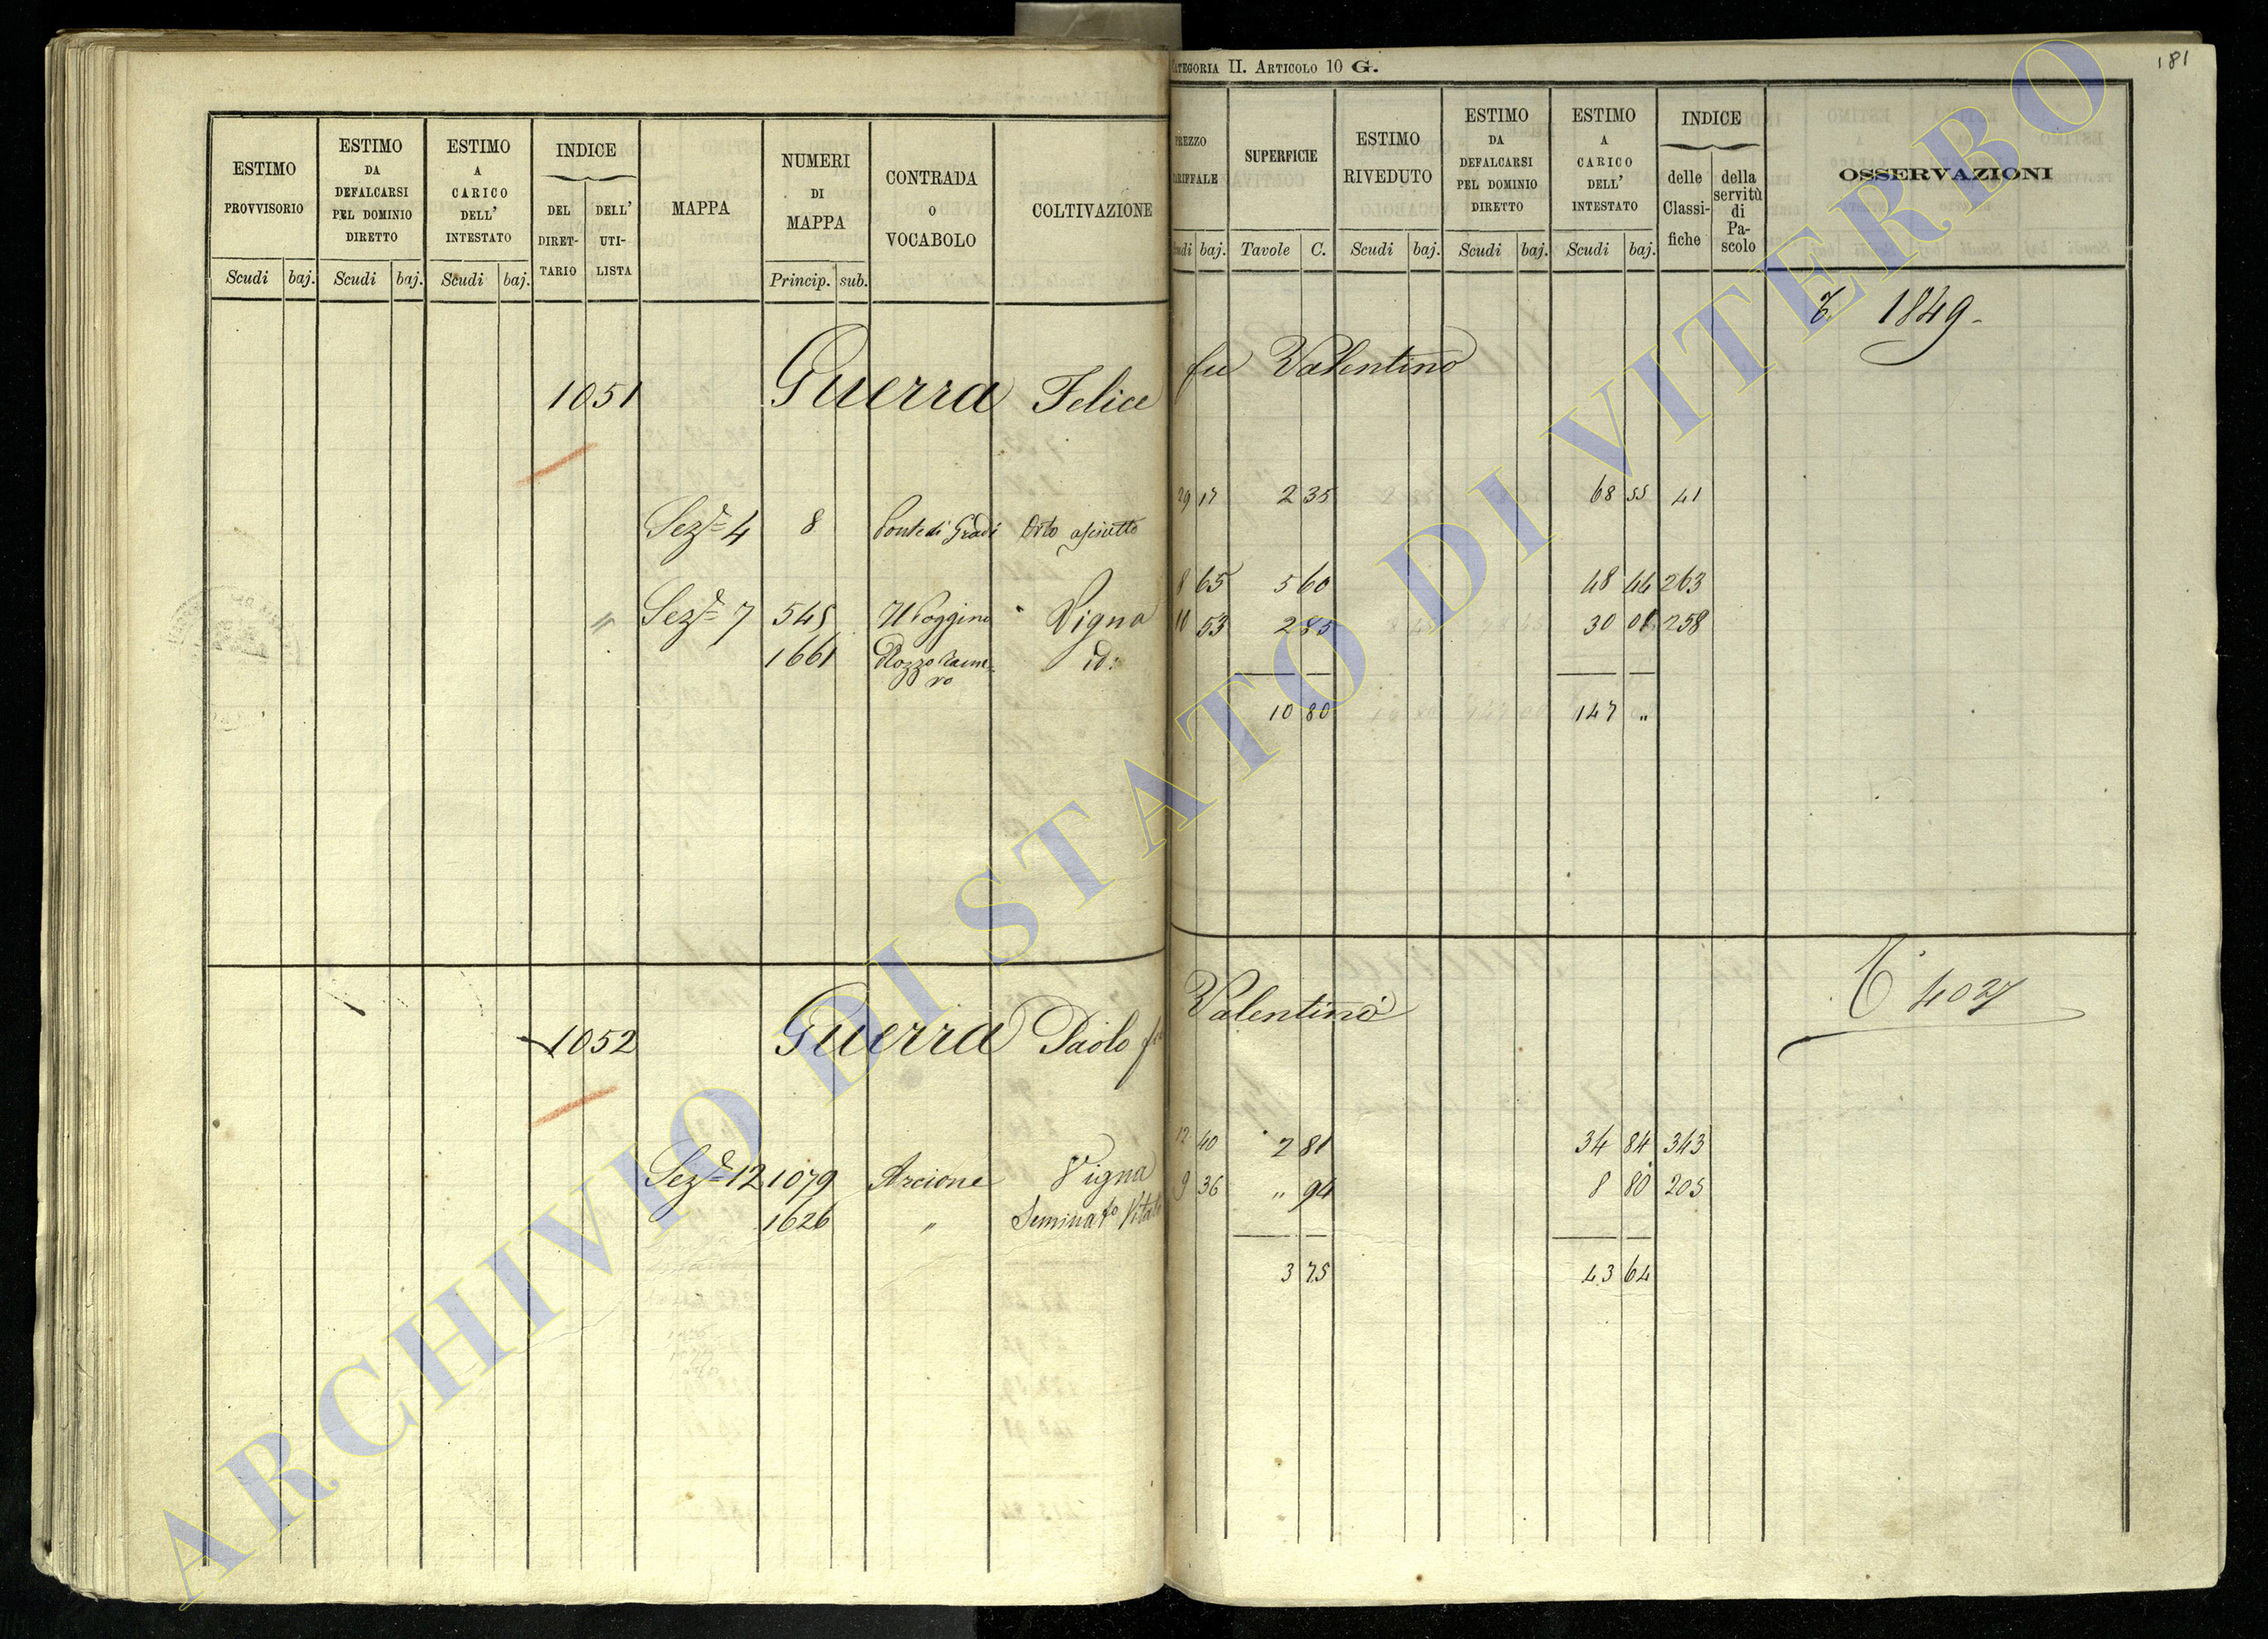 CATEGORIA II. ARTICOLO 10 G.
181
ESTIMO
PROVVISORIO
Scudi baj.
ESTIMO
DA
DEFALCARSI
PEL DOMINIO
DIRETTO
Scudi baj.
ESTIMO
A
CARICO
DELL'
INTESTATO
Scudi baj.
INDICE
DEL
DIRET-
TARIO
DELL'
UTI-
LISTA
MAPPA
NUMERI
DI
MAPPA
Princip. sub.
CONTRADA
O
VOCABOLO
COLTIVAZIONE
PREZZO
TARIFFALE
Scudi baj.
SUPERFICIE
Tavole C.
ESTIMO
RIVEDUTO
Scudi baj.
ESTIMO
DA
DEFALCARSI
PEL DOMINIO
DIRETTO
Scudi baj.
ESTIMO
A
CARICO
DELL'
INTESTATO
Scudi baj.
INDICE
delle
Classi-
fiche
della
servitù
di
Pa-
scolo
OSSERVAZIONI
1849
1051 Guerra Felice fu Valentino
Sez.e 4 8 Ponte di Gradi Orto asciutto 29 17 2 35 68 55 41
Sez.e 7 545 Il Poggino Vigna 8 65 5 60 48 44 263
1661 id: 10 53 2 85 30 01 258
10 80 147 "
1052 Guerra Paolo fu Valentino
4027
Sez.e 12 1079 Arcione Vigna 12 40 2 81 34 84 343
1626 " Seminat.o Vitato 9 36 " 94 8 80 205
3 75 43 64
ARCHIVIO DI STATO DI VITERBO